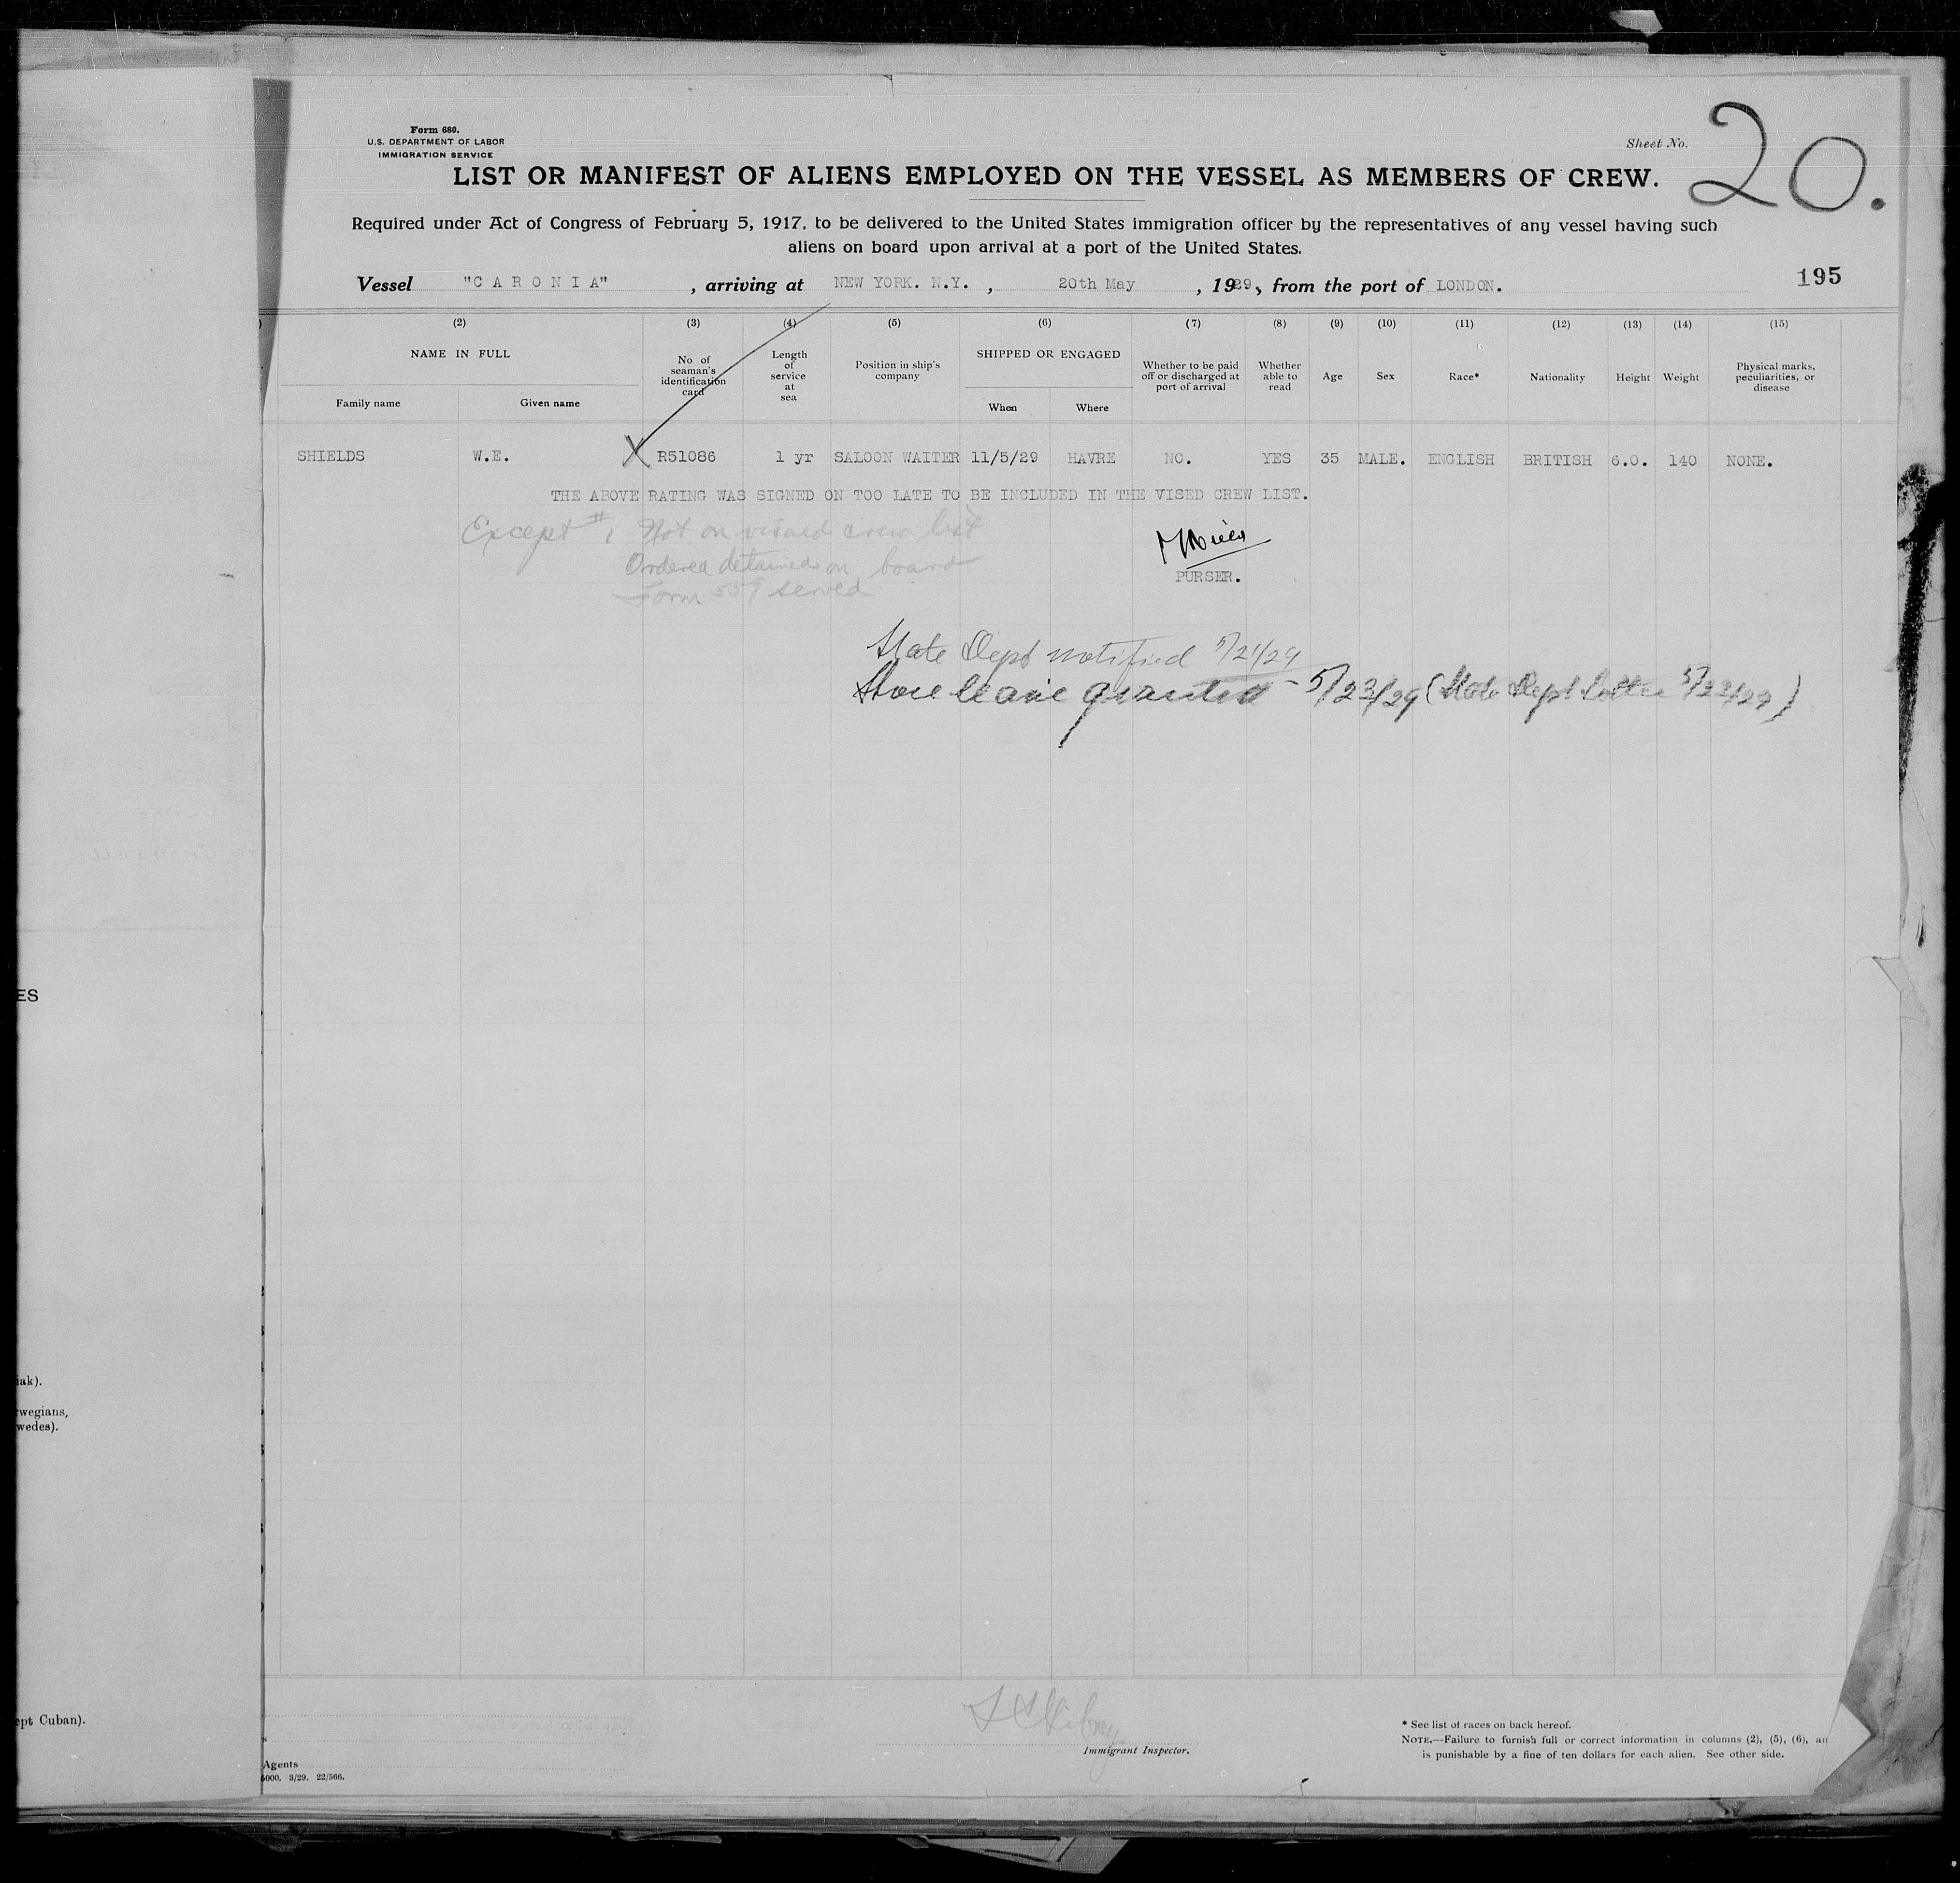 Form 680.
U.S. DEPARTMENT OF LABOR
IMMIGRATION SERVICE
Sheet No. 20.
LIST OR MANIFEST OF ALIENS EMPLOYED ON THE VESSEL AS MEMBERS OF CREW.
Required under Act of Congress of February 5, 1917, to be delivered to the United States immigration officer by the representatives of any vessel having such
aliens on board upon arrival at a port of the United States.
195
Vessel "CARONIA", arriving at NEW YORK. N.Y., 20th May, 1929, from the port of LONDON.
(2) (3) (4) (5) (6) (7) (8) (9) (10) (11) (12) (13) (14) (15)
NAME IN FULL
Family name
Given name
No of
seaman's
identification
card
Length
of
service
at
sea
Position in ship's
company
SHIPPED OR ENGAGED
When
Where
Whether to be paid
off or discharged at
port of arrival
Whether
able to
read
Age
Sex
Race*
Nationality
Height
Weight
Physical marks,
peculiarities, or
disease
SHIELDS W.E. X R51086 1 yr SALOON WAITER 11/5/29 HAVRE NO. YES 35 MALE. ENGLISH BRITISH 6.0. 140 NONE.
THE ABOVE RATING WAS SIGNED ON TOO LATE TO BE INCLUDED IN THE VISED CREW LIST.
Except #1 Not on visaed crew list
Ordered detained on board
Form 559 served
PURSER.
State Dept notified 5/21/29
Shore leave granted - 5/23/29 (State Dept Letter 5/22/29)
ES
iak).
rwegians,
wedes).
ept Cuban).
Agents
5000. 3/29. 22/566.
Immigrant Inspector.
* See list of races on back hereof.
NOTE.—Failure to furnish full or correct information in columns (2), (5), (6), an
is punishable by a fine of ten dollars for each alien. See other side.